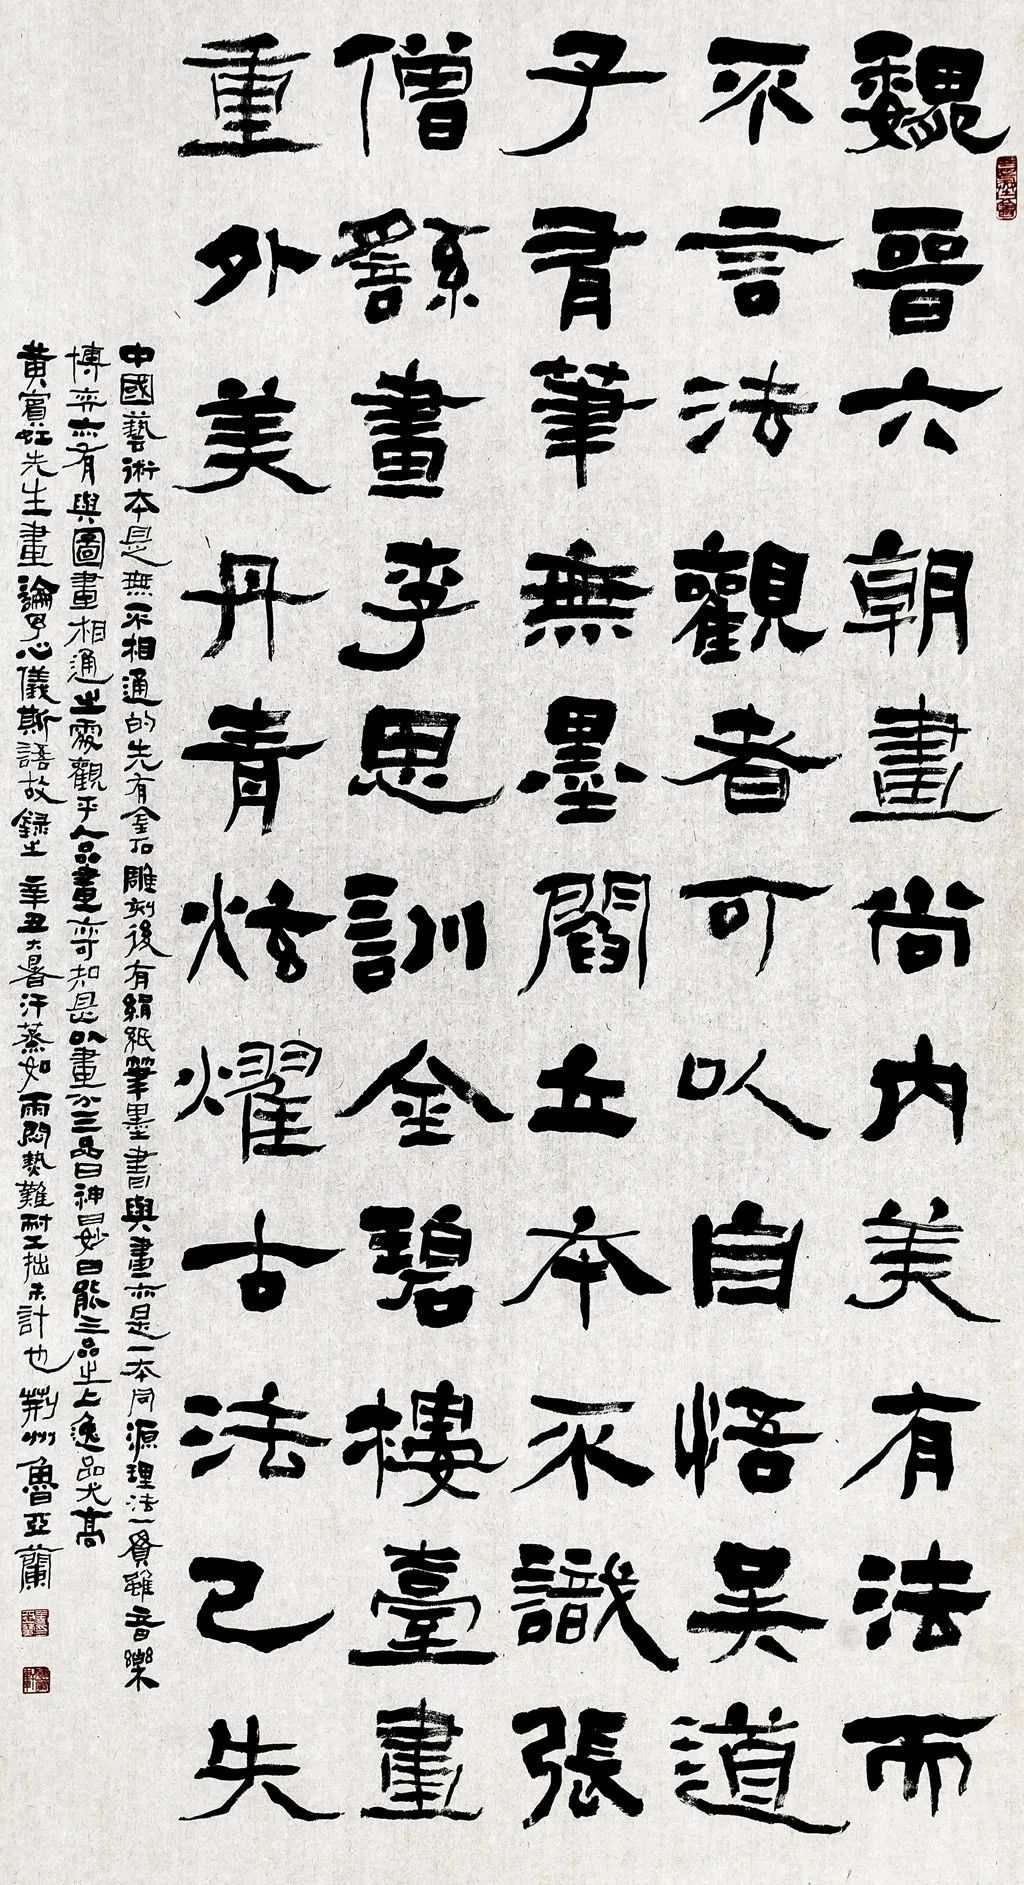 魏晉六朝畫尚內美有法而
不言法觀者可以自悟吳道
子有筆無墨閻立本不識張
僧繇畫李思訓金碧樓臺畫
重外美丹青炫燿古法已失
中國藝術本是無不相通的先有金石雕刻後有絹紙筆墨書與畫亦是一本同源理法一貫雖音樂
博弈亦有與圖畫相通之處觀乎人品畫亦可知是以畫分三品曰神曰妙曰能三品之上逸品尤高
黃賓虹先生畫論予心儀斯語故錄之辛丑大暑汗蒸如雨悶熱難耐工拙未計也荊州魯亞蘭